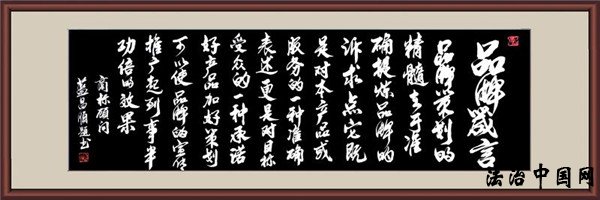 品牌箴言
品牌策划的
精髓在于准
确提炼品牌的
诉求点它既
是对本产品或
服务的一种准确
表达更是对目标
受众的一种承诺
好产品加好策划
可以使品牌的宣传
推广起到事半
功倍的效果
商标顾问
蓝昌顺题书
法治中国网